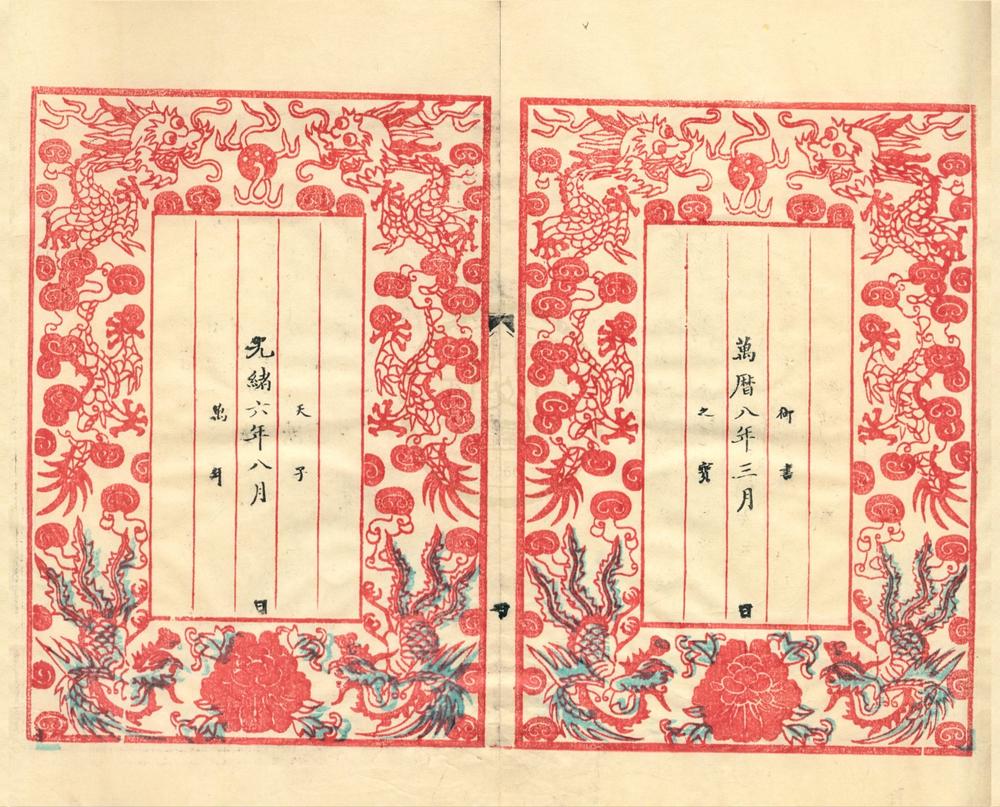 御書
萬暦八年三月 日
之寶
天子
光緒六年八月 日
萬年